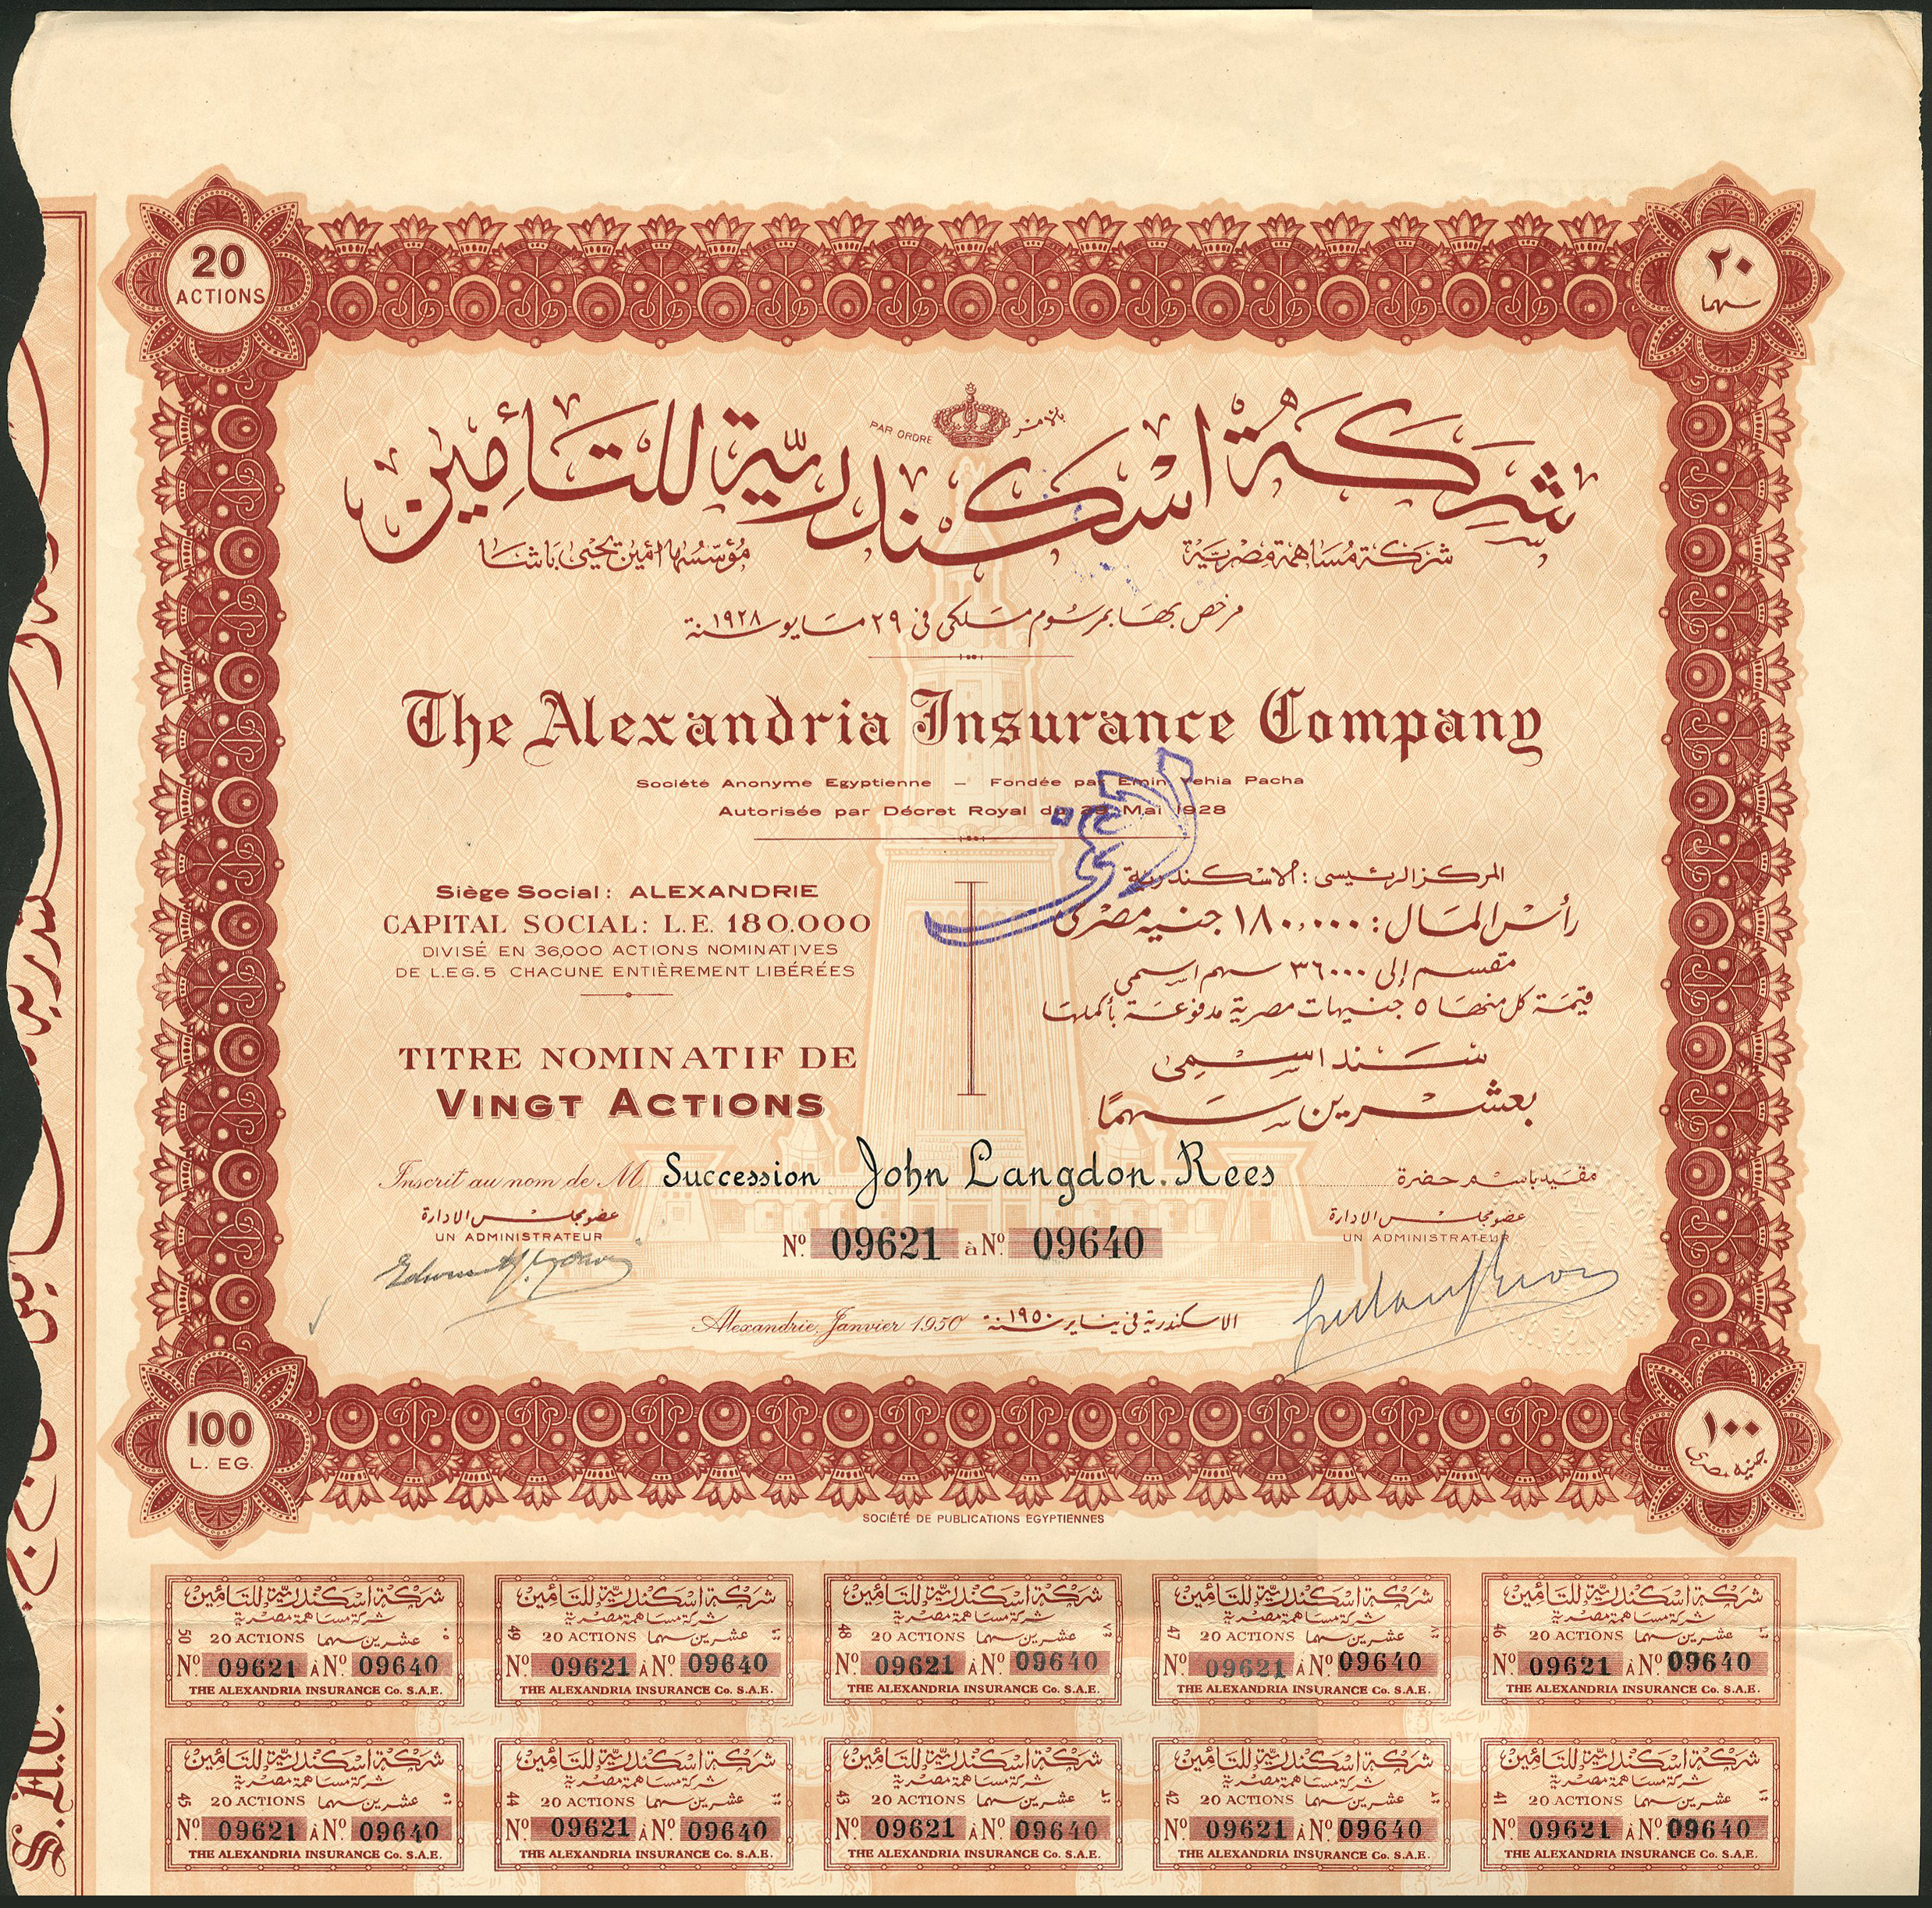 20
ACTIONS
٢٠
سهما
PAR ORDRE
بالأمر
شركة اسكندرية للتأمين
شركة مساهمة مصرية
مؤسسها أمين يحيى باشا
مرخص بها بمرسوم ملكى فى ٢٩ مايو سنة ١٩٢٨
The Alexandria Insurance Company
Société Anonyme Egyptienne — Fondée par Emin Yehia Pacha
Autorisée par Décret Royal du 29 Mai 1928
Siège Social: ALEXANDRIE
CAPITAL SOCIAL: L.E. 180.000
DIVISÉ EN 36,000 ACTIONS NOMINATIVES
DE L.EG. 5 CHACUNE ENTIÈREMENT LIBÉRÉES
TITRE NOMINATIF DE
VINGT ACTIONS
المركز الرئيسى: الاسكندرية
رأس المال: ١٨٠,٠٠٠ جنيه مصرى
مقسم إلى ٣٦٠٠٠ سهم اسمى
قيمة كل منها ٥ جنيهات مصرية مدفوعة بأكملها
سند اسمى
بعشرين سهمًا
Inscrit au nom de M Succession John Langdon. Rees
مقيد باسم حضرة
عضو مجلس الادارة
UN ADMINISTRATEUR
Nº 09621 à Nº 09640
عضو مجلس الادارة
UN ADMINISTRATEUR
Alexandrie, Janvier 1950
الاسكندرية فى يناير سنة ١٩٥٠
100
L. EG.
١٠٠
جنيه مصرى
SOCIÉTÉ DE PUBLICATIONS EGYPTIENNES
شركة اسكندرية للتأمين
شركة مساهمة مصرية
50 20 ACTIONS عشرين سهما ٥٠
Nº 09621 À Nº 09640
THE ALEXANDRIA INSURANCE Co. S.A.E.
شركة اسكندرية للتأمين
شركة مساهمة مصرية
49 20 ACTIONS عشرين سهما ٤٩
Nº 09621 À Nº 09640
THE ALEXANDRIA INSURANCE Co. S.A.E.
شركة اسكندرية للتأمين
شركة مساهمة مصرية
48 20 ACTIONS عشرين سهما ٤٨
Nº 09621 À Nº 09640
THE ALEXANDRIA INSURANCE Co. S.A.E.
شركة اسكندرية للتأمين
شركة مساهمة مصرية
47 20 ACTIONS عشرين سهما ٤٧
Nº 09621 À Nº 09640
THE ALEXANDRIA INSURANCE Co. S.A.E.
شركة اسكندرية للتأمين
شركة مساهمة مصرية
46 20 ACTIONS عشرين سهما ٤٦
Nº 09621 À Nº 09640
THE ALEXANDRIA INSURANCE Co. S.A.E.
شركة اسكندرية للتأمين
شركة مساهمة مصرية
45 20 ACTIONS عشرين سهما ٤٥
Nº 09621 À Nº 09640
THE ALEXANDRIA INSURANCE Co. S.A.E.
شركة اسكندرية للتأمين
شركة مساهمة مصرية
44 20 ACTIONS عشرين سهما ٤٤
Nº 09621 À Nº 09640
THE ALEXANDRIA INSURANCE Co. S.A.E.
شركة اسكندرية للتأمين
شركة مساهمة مصرية
43 20 ACTIONS عشرين سهما ٤٣
Nº 09621 À Nº 09640
THE ALEXANDRIA INSURANCE Co. S.A.E.
شركة اسكندرية للتأمين
شركة مساهمة مصرية
42 20 ACTIONS عشرين سهما ٤٢
Nº 09621 À Nº 09640
THE ALEXANDRIA INSURANCE Co. S.A.E.
شركة اسكندرية للتأمين
شركة مساهمة مصرية
41 20 ACTIONS عشرين سهما ٤١
Nº 09621 À Nº 09640
THE ALEXANDRIA INSURANCE Co. S.A.E.